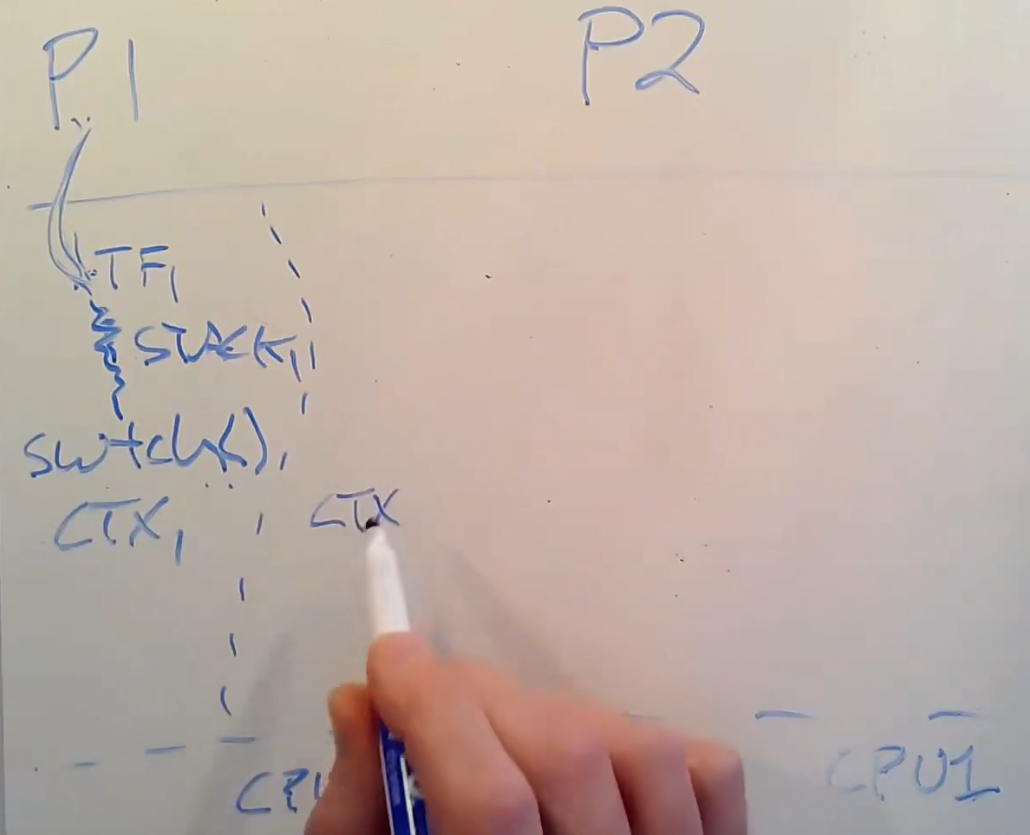 P1 P2
TF1
STACK1
swtch()
CTX1 CTX
CPU1